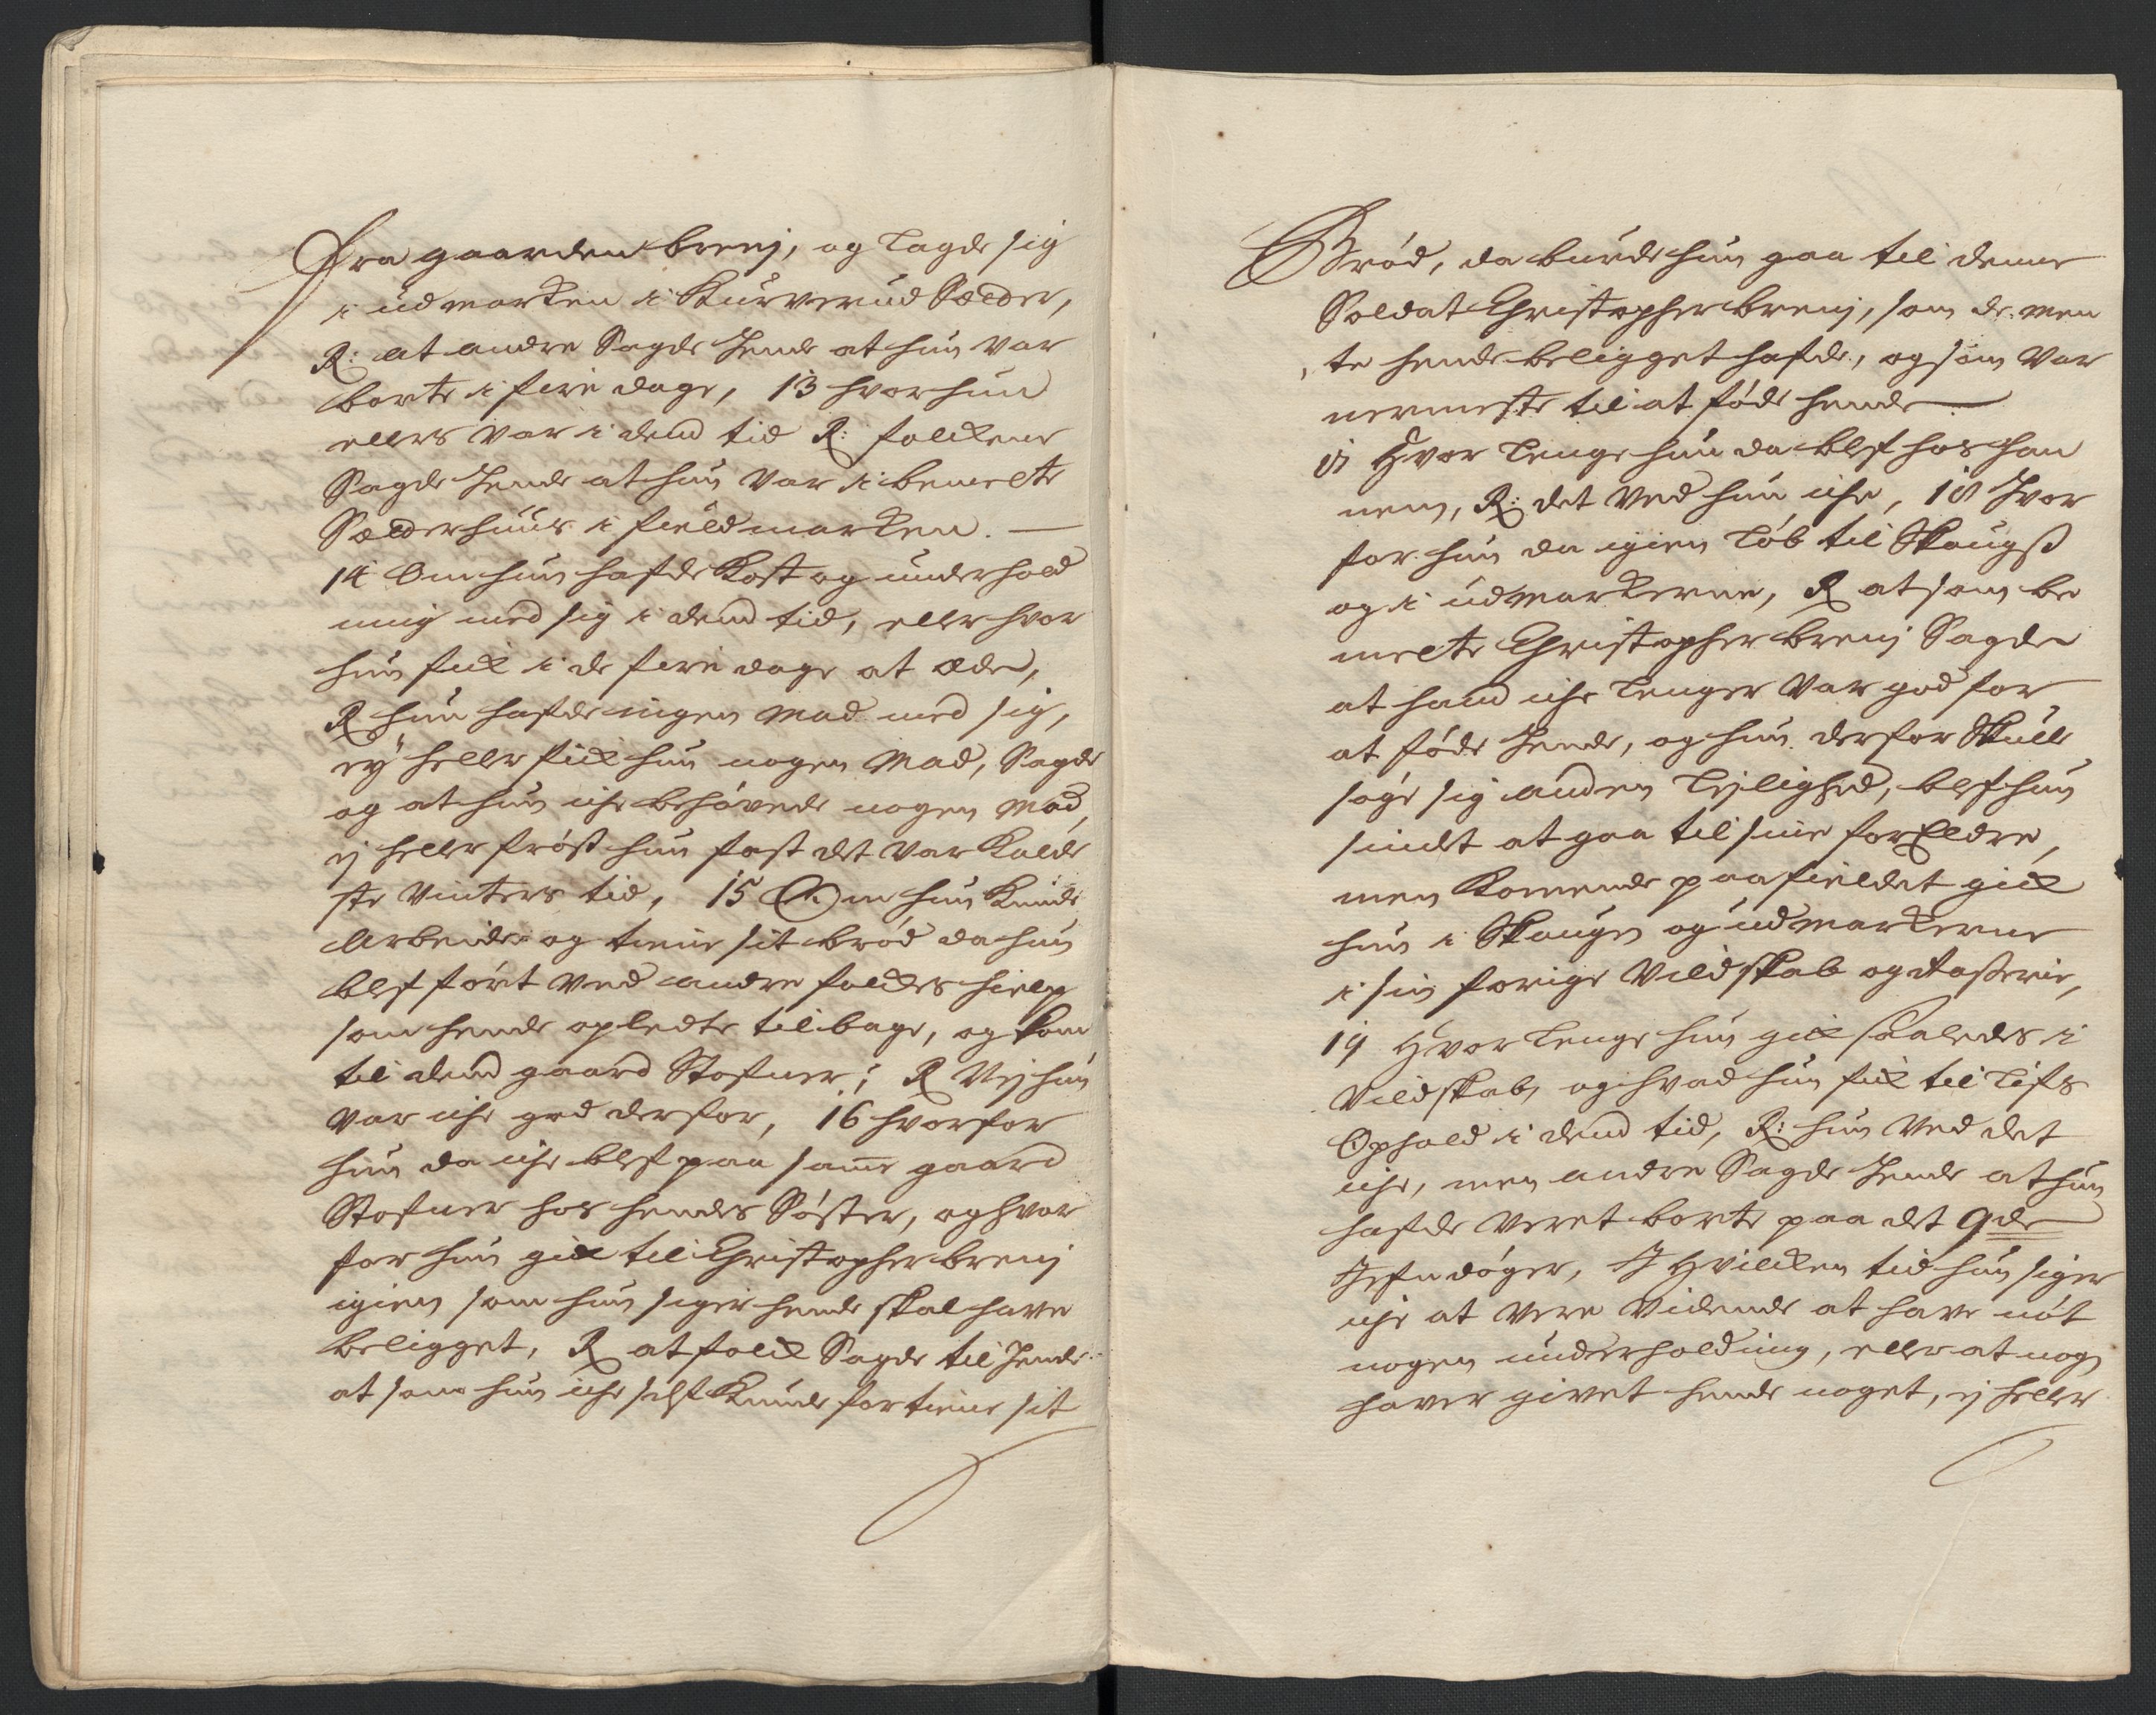 Fra gaarden brenj, og Lagde sig
i udmarken i Kurverud Sæder,
R: at andre Sagde Hende at hun var
borte i fire dage, 13 hvor hun
ellers var i dend tid R: folckene
Sagde Hende at hun var i bemelte
Sæderhuus i fieldmarken. —
14 Om hun hafde Kost og underhold
ning med sig i dend tid, eller hvor
hun fick i de fire dage at æde,
R hun hafde ingen Mad med sig,
eÿ heller fick hun nogen Mad, Sagde
og at hun iche behövede nogen Mad,
ej heller fröß hun fast det var Kalde
ste vinters tid, 15 Om hun Kunde
Arbeide og tiene sit bröd da hun
blef fört ved andre folckes hielp
som hende opledte tilbage, og kom
til dend gaard Stofner; R Nej hun
var iche god derfor, 16 hvorfor
hun da iche blef paa samme gaard
Stofner hos hendes Söster, og hvor
for hun gick til Christopher brenj
igien som hun siger hende skal have
beligget, R at folck Sagde til Hende
at som hun iche self Kunde fortiene sit
Bröd, da burde hun gaa til denne
Soldat Christopher brenj, som de men
te hende beligget hafde, og som var
nermeste til at föde hende —
17 Hvor Lenge hun da blef hos han
nem, R: det ved hun iche, 18 Hvor
for hun da igien Löb til Skougs
og i udmarkerne, R at som be
melte Christopher brenj Sagde
at hand iche Lenger var god for
at föde Hende, og hun derfor Skulle
söge sig anden Lejlighed, blef hun
sindet at gaa til sine forEldre,
men Komende paa fieldet gick
hun i Skougen og udmarkerne
i sin forige Vildskab og Raserie,
19 Hvor Lenge hun gick saaledes i
Vildskab, og hvad hun fick til Lifs
Ophold i dend tid, R: hun ved det
iche, men andre Sagde Hende at hun
hafde veret borte paa det 9de
Jefndöger, I Hvilcken tid hun siger
iche at vere vidende at have nöt
nogen underholdning, eller at nogen
haver givet hende noget, ej heller